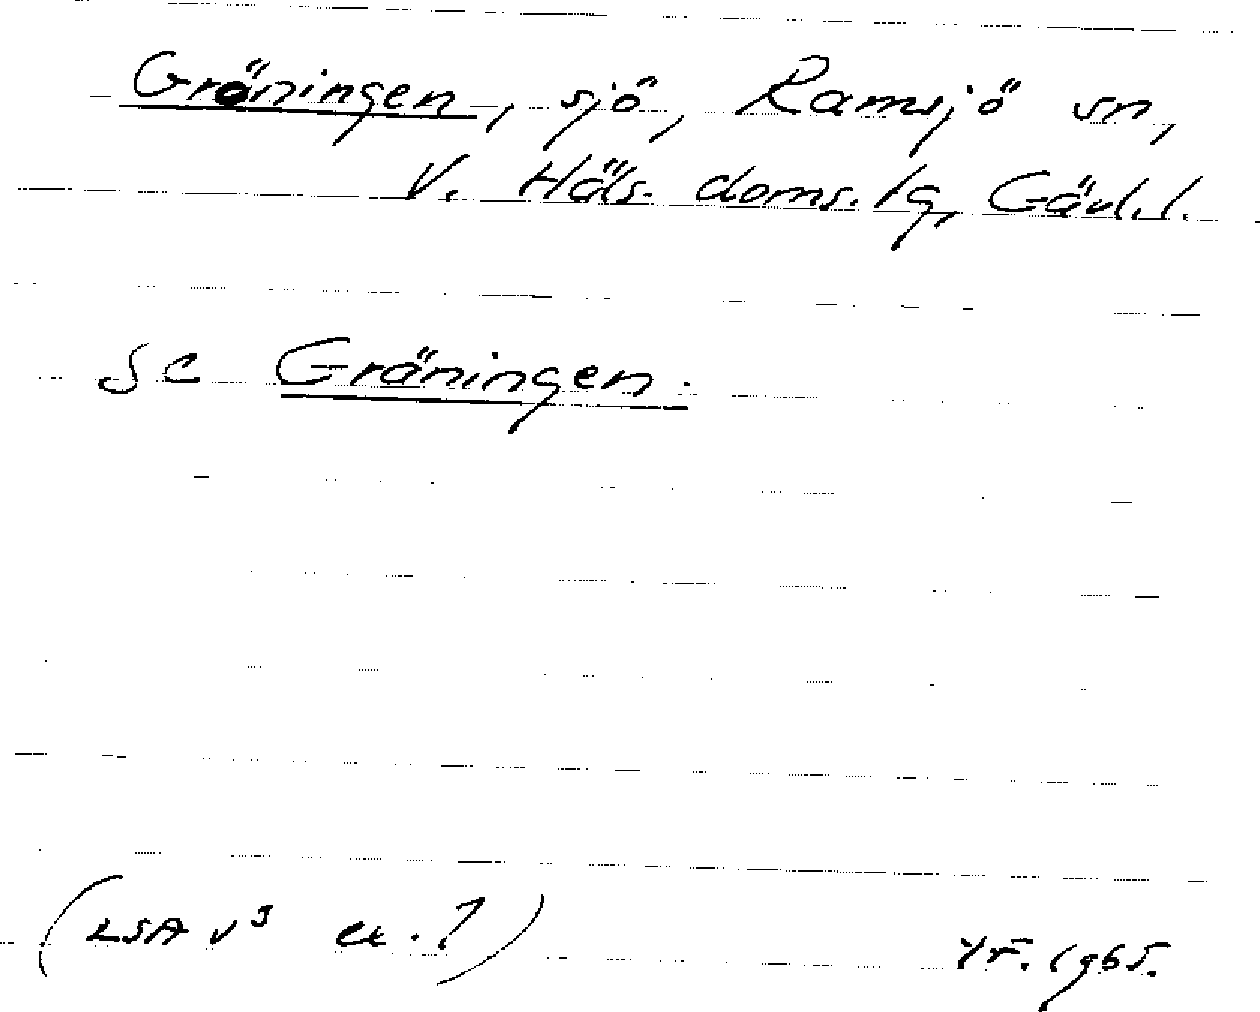 Gröningen, sjö, Ramsjö sn,
V. Häls. doms.lg, Gävl.l.
Se Gräningen.
(LSA v³ ex.?)
1965.